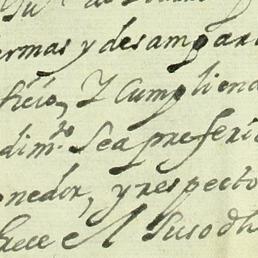 ermas y desampar
ficio, Y Cumpliend
dim.to Sea preferi
onedor, y respecto
frece el Susodh